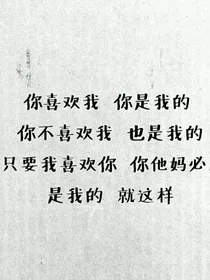 你喜欢我 你是我的
你不喜欢我 也是我的
只要我喜欢你 你他妈必
是我的 就这样